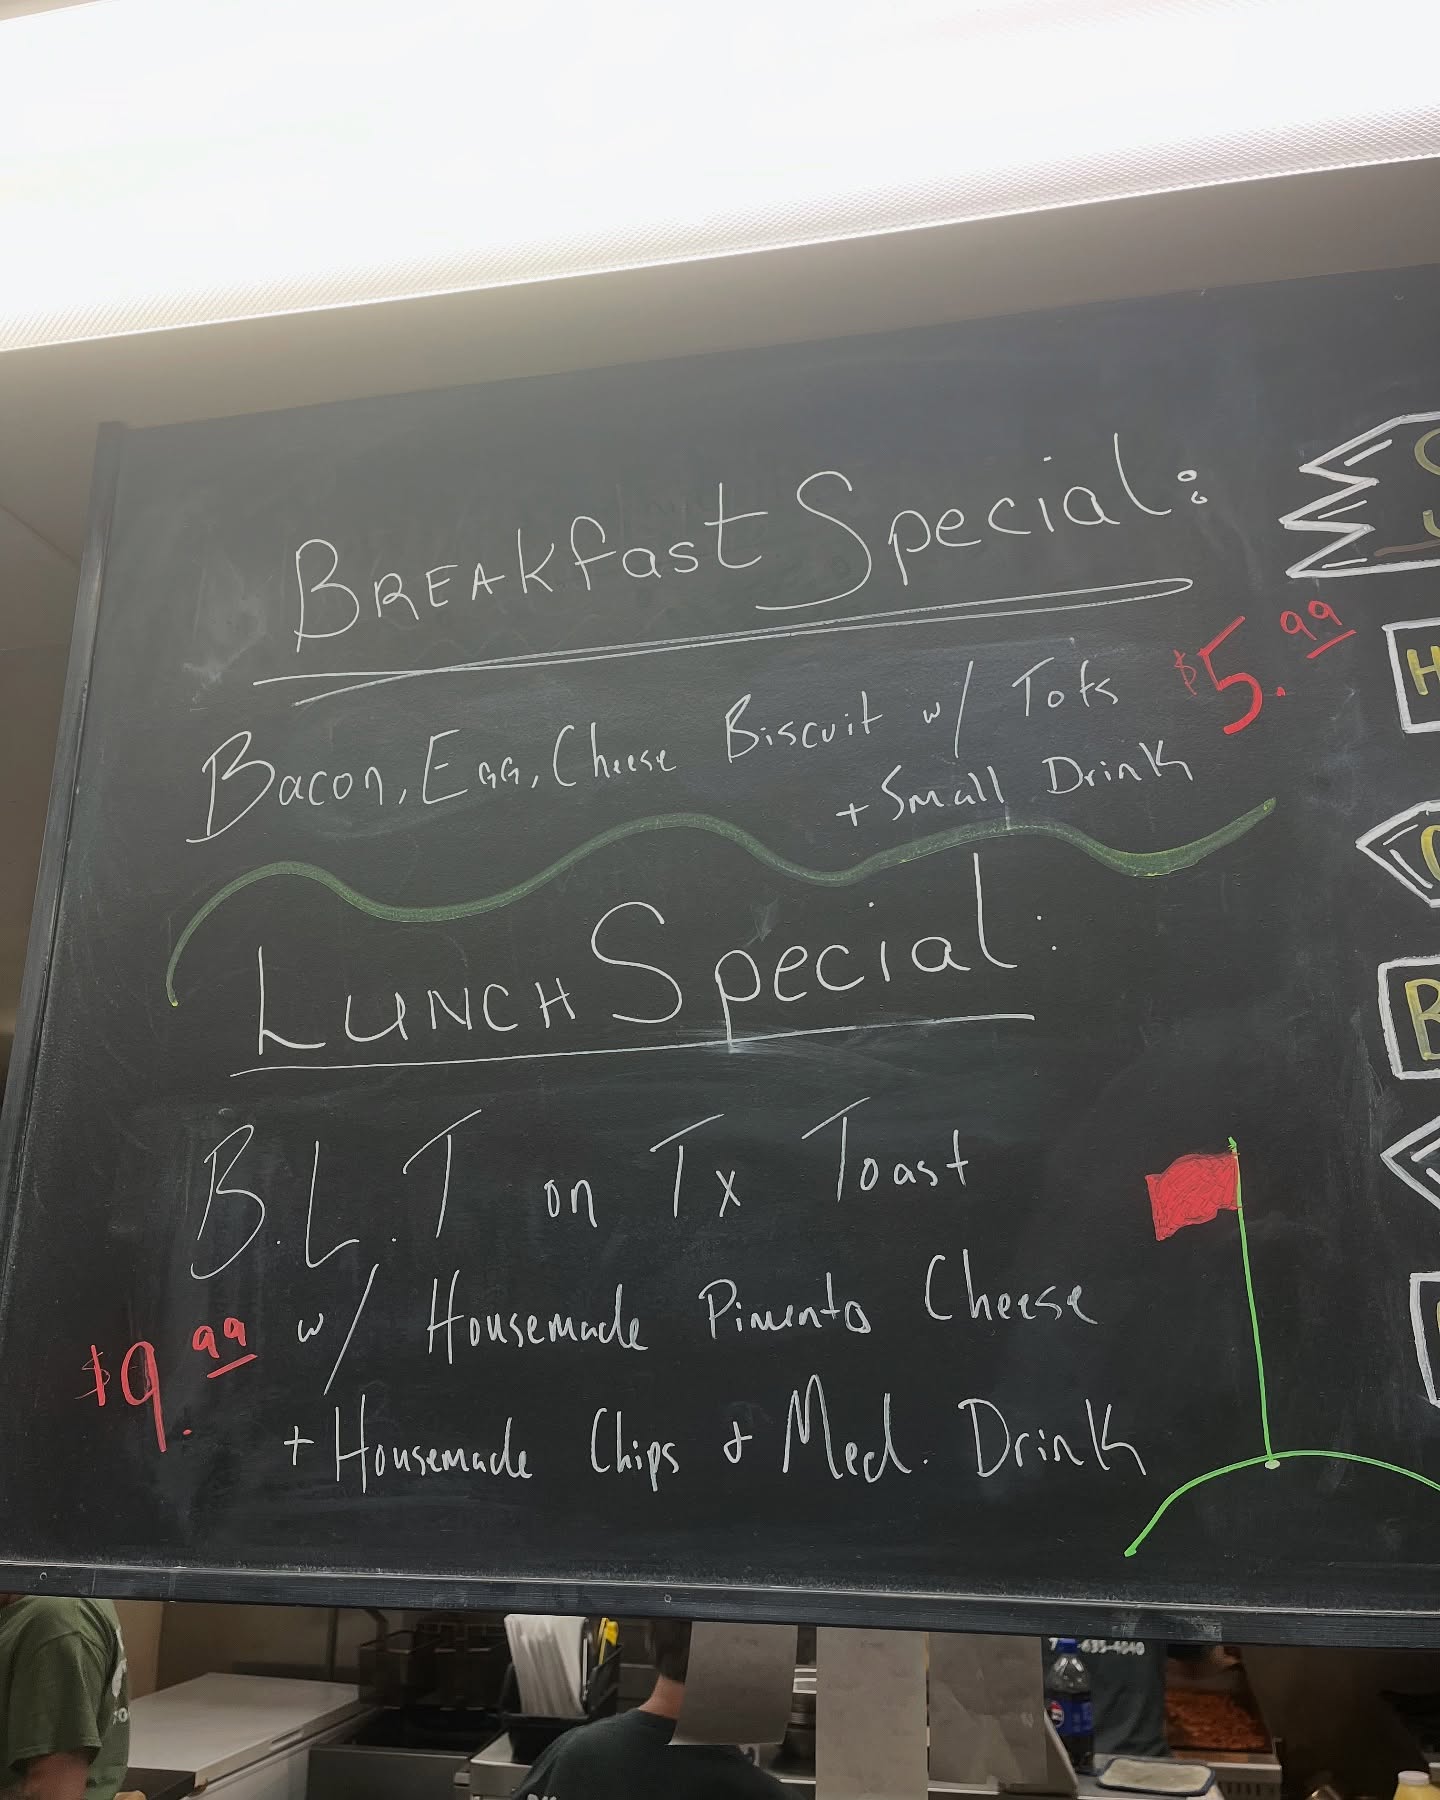 Breakfast Special:
Bacon, Egg, Cheese Biscuit w/ Tots $5.99
+ Small Drink
Lunch Special:
B.L.T on Tx Toast
$9.99 w/ Housemade Pimento Cheese
+ Housemade Chips & Med. Drink
635-4040